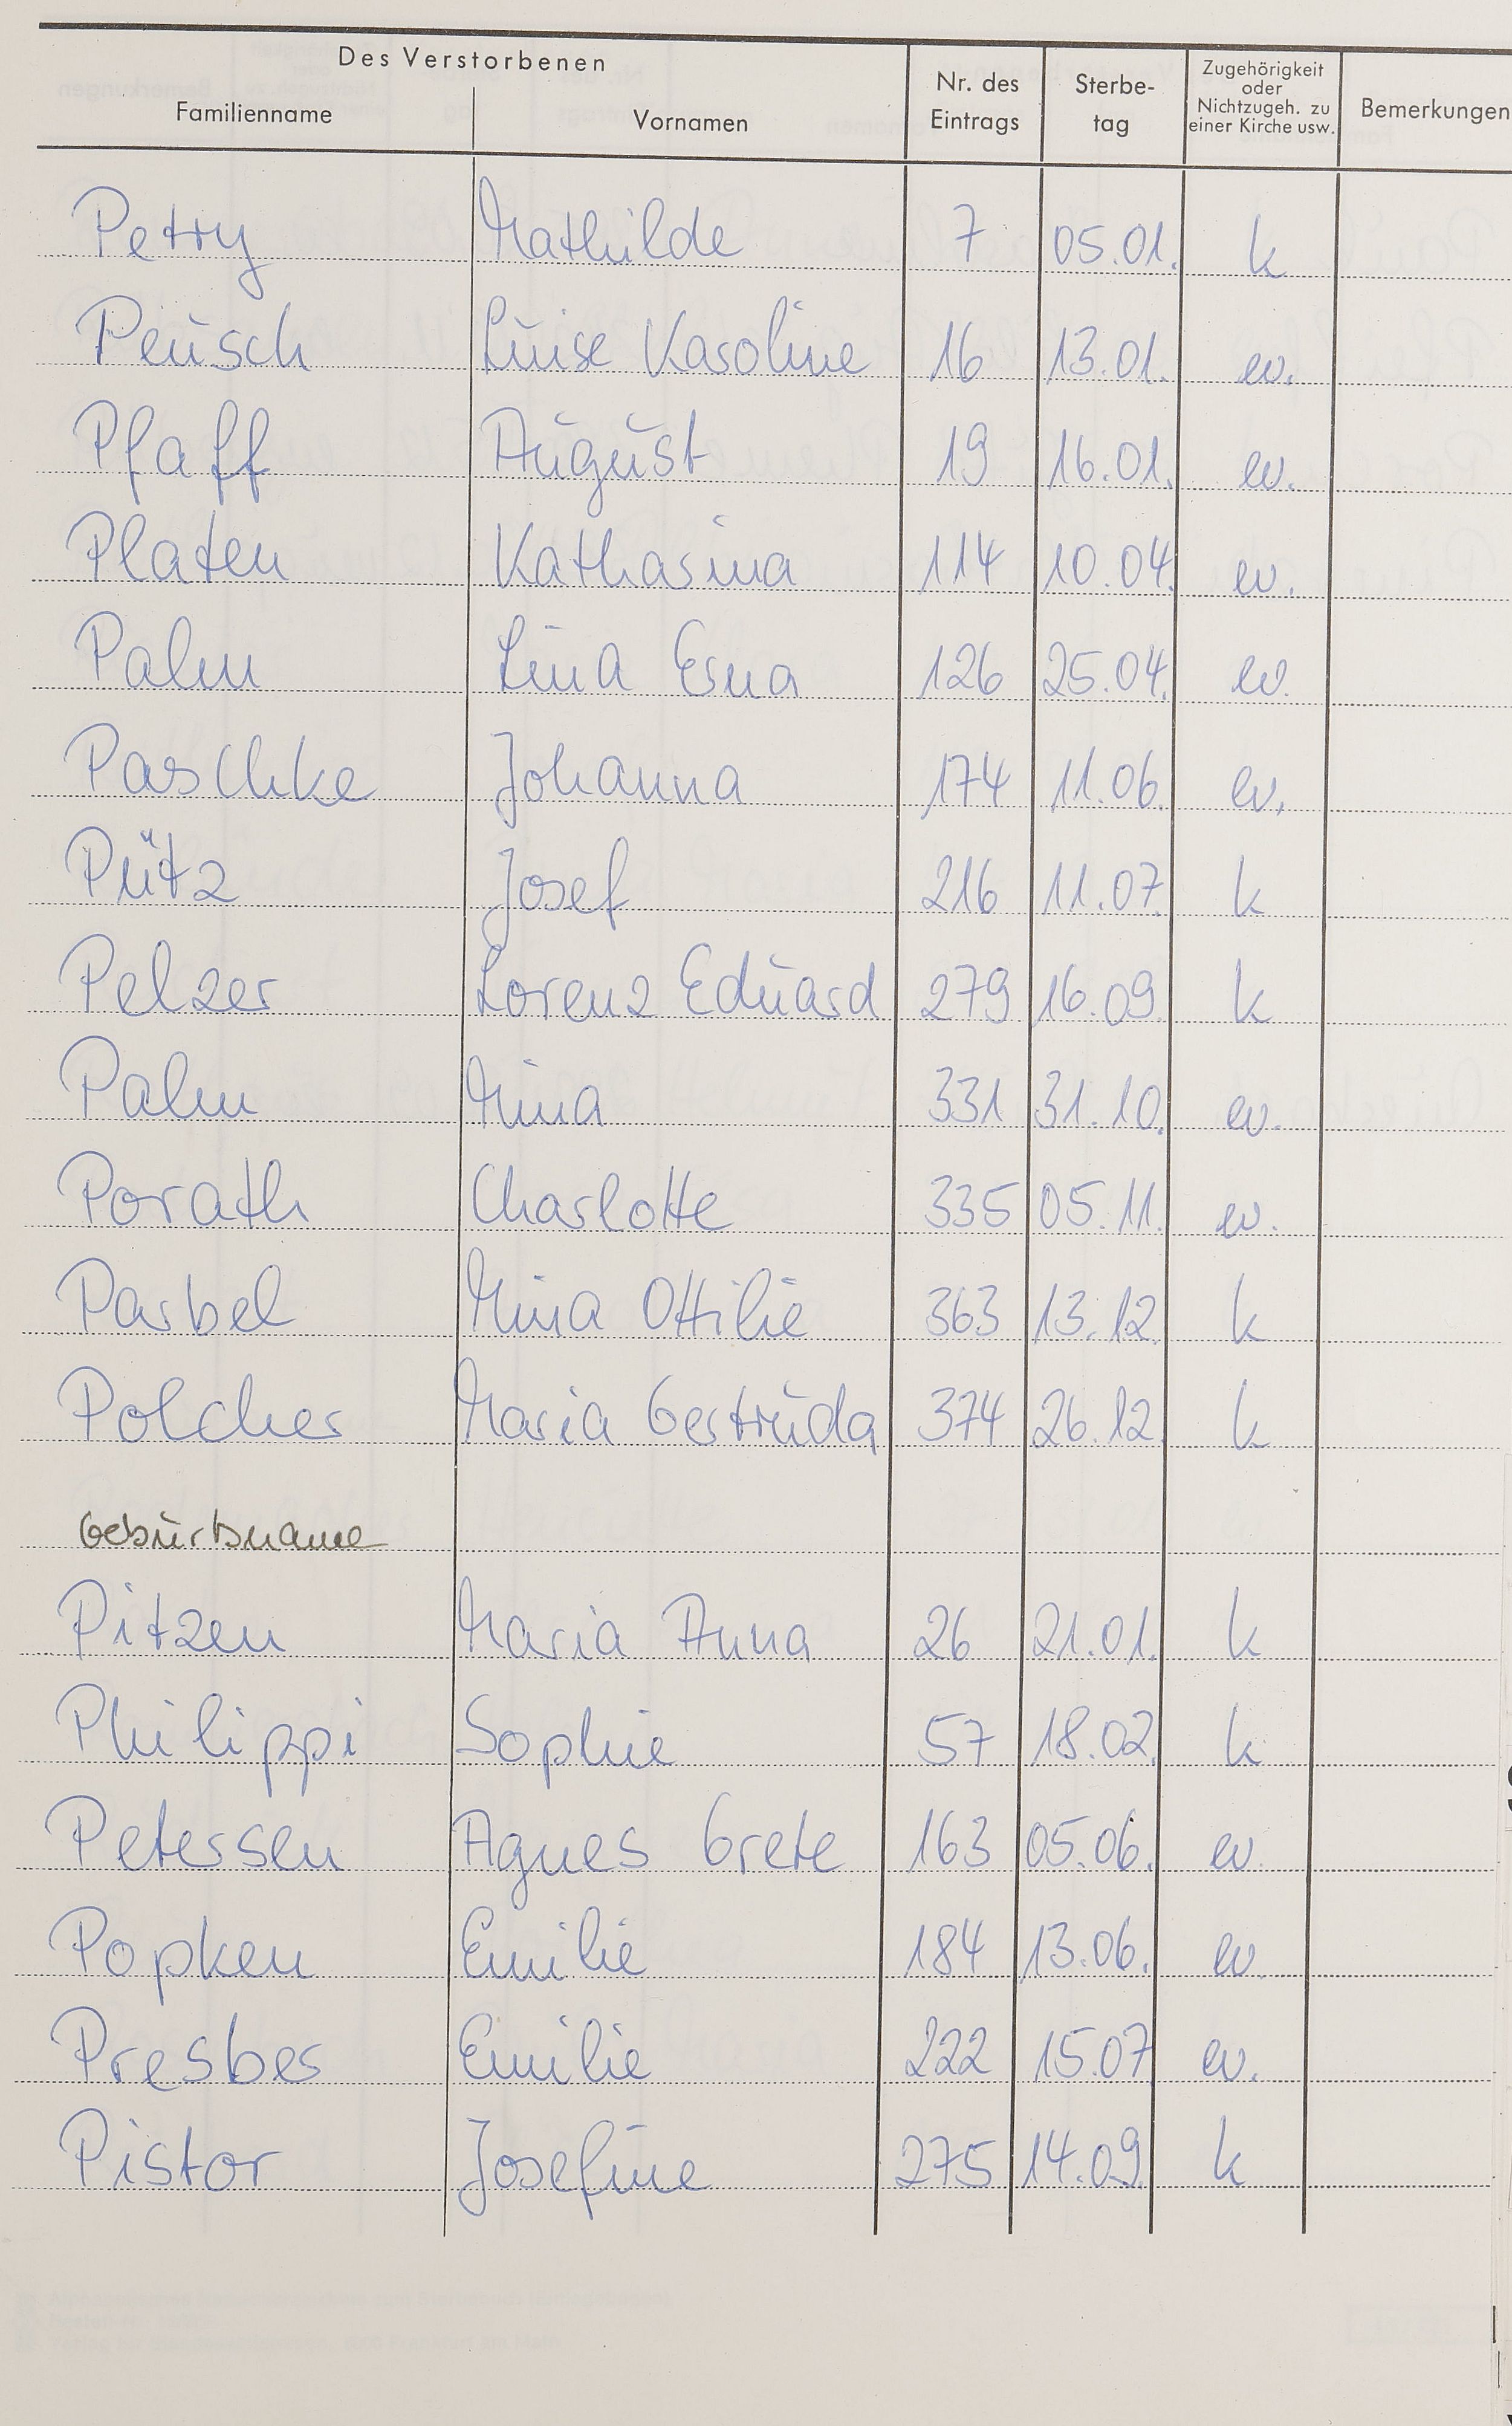 Des Verstorbenen
Familienname Vornamen Nr. des Eintrags Sterbe-tag Zugehörigkeit oder Nichtzugeh. zu einer Kirche usw. Bemerkungen
Petry Mathilde 7 05.01. k
Peusch Luise Karoline 16 13.01. ev.
Pfaff August 19 16.01. ev.
Platen Katharina 114 10.04. ev.
Palm Lina Erna 126 25.04. ev.
Paschke Johanna 174 11.06. ev.
Pütz Josef 216 11.07. k
Pelzer Lorenz Eduard 279 16.09. k
Palm Mina 331 31.10. ev.
Porath Charlotte 335 05.11. ev.
Parbel Mina Ottilie 363 13.12. k
Polcher Maria Gertruda 374 26.12. k
Geburtsname
Pitzen Maria Anna 26 21.01. k
Philippi Sophie 57 18.02. k
Peterssen Agnes Grete 163 05.06. ev.
Popken Emilie 184 13.06. ev.
Presber Emilie 222 15.07 ev.
Pistor Josefine 275 14.09. k